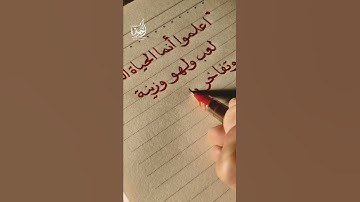 اعلموا أنما الحياة
لعب ولهو وزينة
وتفاخر